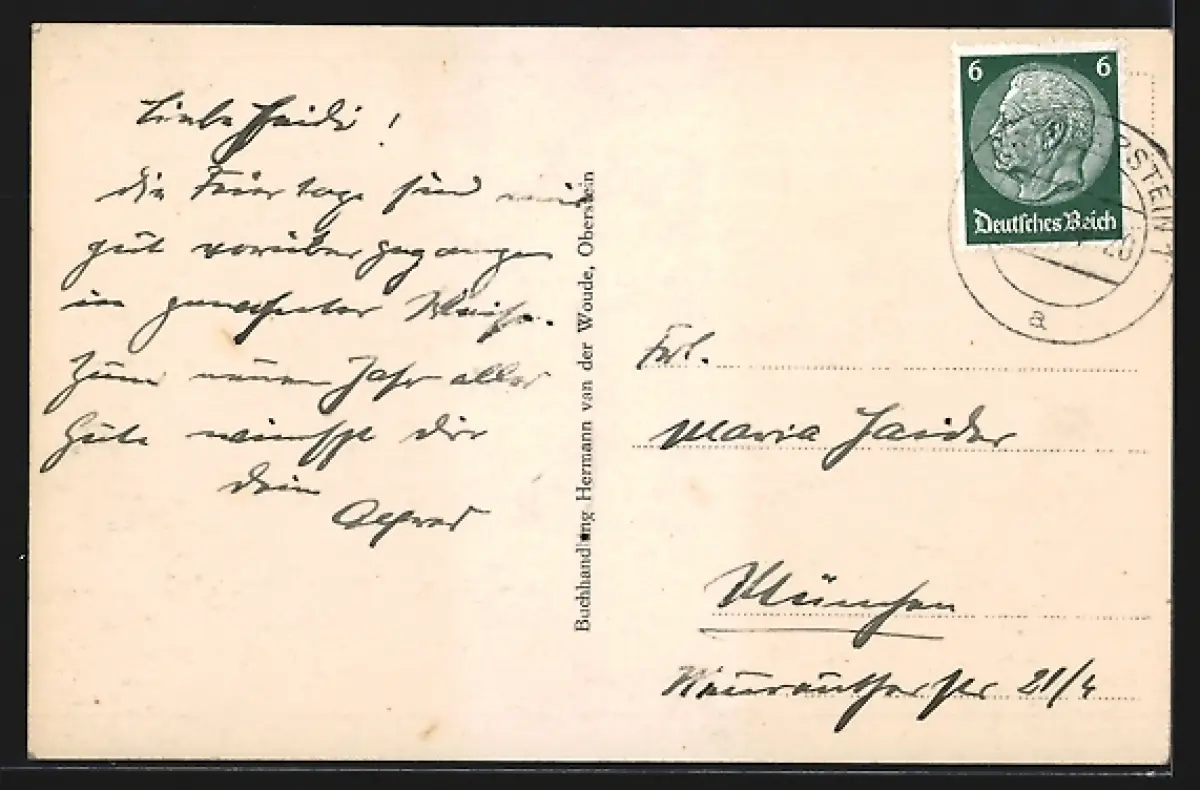 Liebe Heidi!
die Feiertage sind
gut vorübergegangen
in gewohnter Weise.
Zum neuen Jahr alles
Gute wünscht dir
dein
Alfred
Buchhandlung Hermann van der Woude, Oberstein
6 6
Deutsches Reich
RSTEIN 1
a
Frl.
Maria Haider
München
21/4